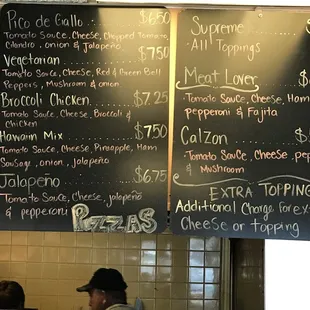 Pico de Gallo $6.50
Tomato Sauce, Cheese, Chopped Tomato,
Cilandro, onion & Jalapeño
Vegetarian $7.50
Tomato Sauce, Cheese, Red & Green Bell
Peppers, Mushroom & onion
Broccoli Chicken $7.25
Tomato Sauce, Cheese, Broccoli &
chicken
Hawaiin Mix $7.50
Tomato Sauce, Cheese, Pineapple, Ham
Sausage, onion, jalapeño
Jalapeño $6.75
Tomato Sauce, Cheese, jalapeño
& pepperoni
Pizzas
Supreme
All Toppings
Meat Lover $
Tomato Sauce, Cheese, Ham
pepperoni & Fajita
Calzon $
Tomato Sauce, Cheese, pep
& Mushroom
Extra Topping
Additional Charge for ex
Cheese or topping